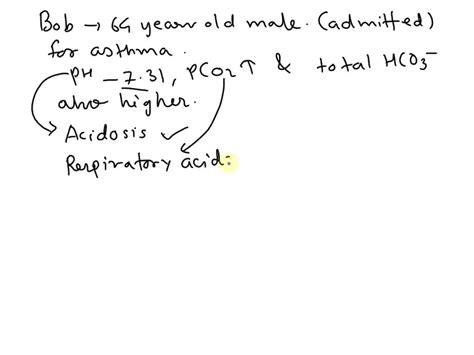 Bob → 64 year old male. (admitted)
for asthma.
pH - 7.31, PCO2 ↑ & total HCO3⁻
also higher.
Acidosis ✓
Respiratory acid: